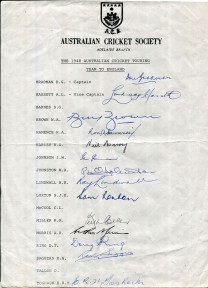 A.C.S.
AUSTRALIAN CRICKET SOCIETY
ADELAIDE BRANCH
THE 1948 AUSTRALIAN CRICKET TOURING
TEAM TO ENGLAND
BRADMAN D.G. - Captain
HASSETT A.L. - Vice Captain
BARNES S.G.
BROWN W.A. Bill Brown
HAMENCE R.A. Ron Hamence
HARVEY R.N. Neil Harvey
JOHNSON I.W. Ian Johnson
JOHNSTON W.A.
LINDWALL R.R. Ray Lindwall
LOXTON S.J. Sam Loxton
McCOOL C.L.
MILLER K.R.
MORRIS A.R. Arthur Morris
RING D.T. Doug Ring
SAGGERS R.A.
TALLON D.
TOSHACK E.R.H.